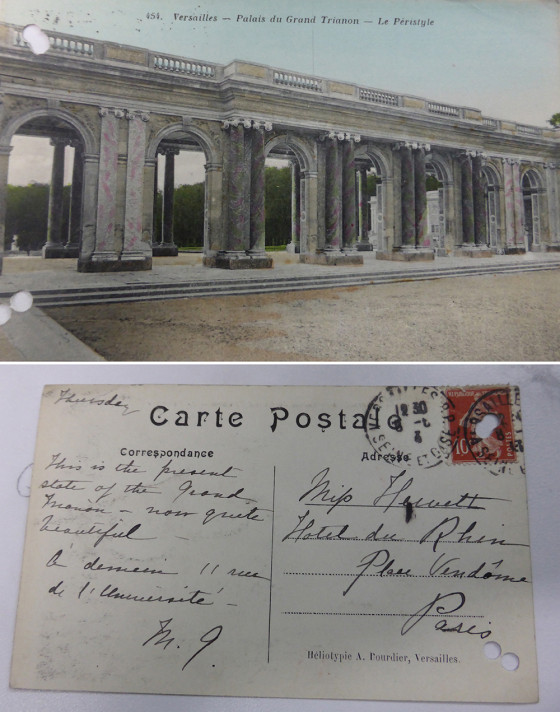 454. Versailles — Palais du Grand Trianon — Le Péristyle
Thursday
Carte Postale
Correspondance
Adresse
This is the present
state of the Grand
Trianon – now quite
beautiful –
à demain 11 rue
de l'Université –
M. J.
Miss Hewett
Hotel du Rhin
Place Vendôme
Paris
VERSAILLES
12 30
SEINE ET OISE
10
POSTES
Héliotypie A. Bourdier, Versailles.